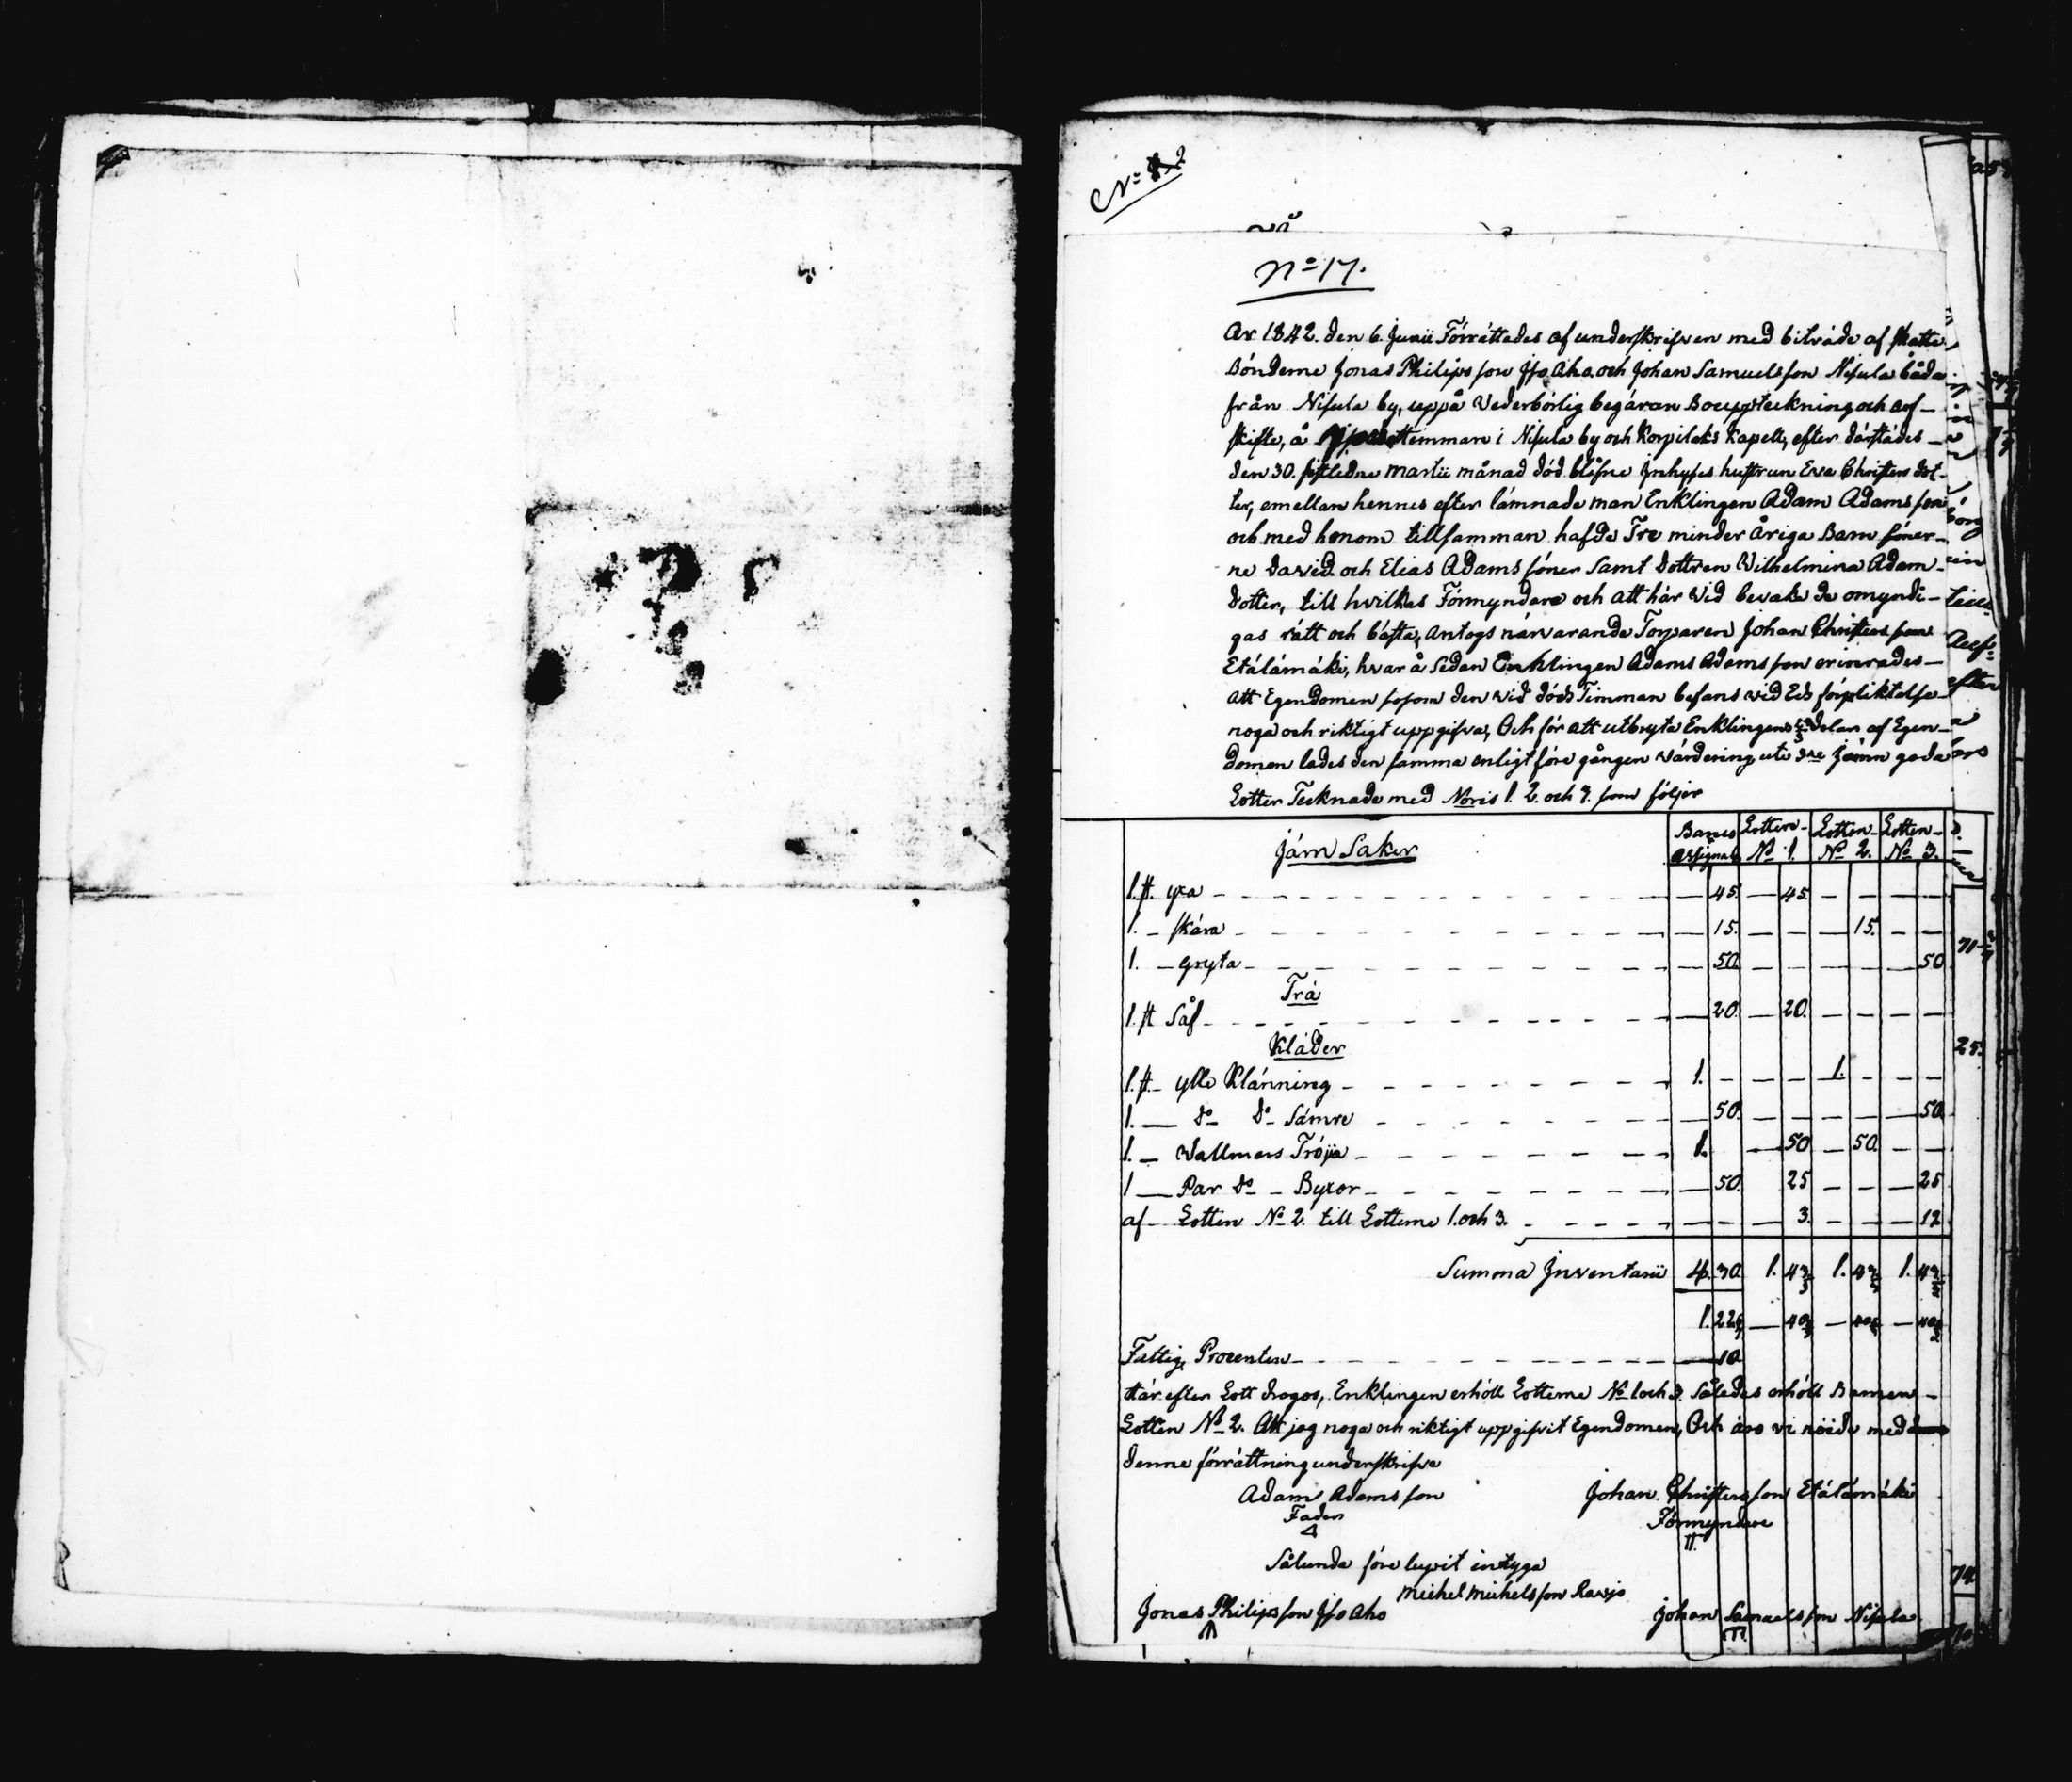 No 17.
År 1842. den 6. Junii Förrättades af underskrifven med biträde af skatte
Bönderne Jonas Philipsson Iso Aho. och Johan Samuelsson Nisula båda
från Nisula by, uppå Vederbörlig begäran Bouppteckning och arf-
skifte, å hemman i Nisula by och Korpilaks Kapell, efter därstädes
den 30. sistledne Martii månad död blefne Inhyses hustrun Eva Christers dot-
ter, emellan hennes efter lämnade man Enklingen Adam Adamsson
och med honom tillsamman hafda Tre minder åriga Barn söner-
ne David och Elias Adams söner Samt dottren Wilhelmina Adam-
dotter, till hvilkas Förmyndare och att här vid bevaka de omyndi-
gas rätt och bästa, antogs närvarande Torparen Johan Christersson
Etälämäki, hvar å sedan Enklingen Adams Adamsson erinrades
att Egendomen sosom den vid döds Timman befans vid Eds förpliktelse
noga och riktigt uppgifva, Och för att utbryta Enklingens delar af Egen-
domen lades den samma enligt före gången värdering uti 3ne jämn goda
Lotter Tecknade med Noris 1. 2. och 3. som följer
Järn Saker Banco Assignat. Lotten No 1. Lotten No 2. Lotten No 3.
1. st. yxa — 45. — 45. — — — —
1. — skära — 15. — — — 15. — —
1. — gryta — 50. — — — — — 50
Trä
1. st Såf — 20. — 20. — — — —
Kläder
1. st. ylle Klänning 1. — — — 1. — — —
1. — do do Sämre — 50. — — — — — 50
1. — Vallmars Tröja 1. — 50 — 50. — —
1 — Par do — Byxor — 50. 25 — — — 25
af Lotten No 2. till Lotterne 1. och 3. — — — 3. — — — 12
Summa Inventarii 4. 30 1. 43 1. 43 1. 43
1. 22
Fattig Procenten — 10
Här efter Lott drogos, Enklingen erhöll Lotterne No 1 och 3. Således erhöll Barnen
Lotten No 2. Att jag noga och riktigt uppgifvit Egendomen, Och äro vi nöida med
denne förrättning underskrifva
Adam Adamsson Johan Christersson Etälämäki
Fader Förmyndare
Sålunda före lupit intyga
Michel Michelsson
Jonas Philipsson Iso Aho Johan Samuelsson Nisula